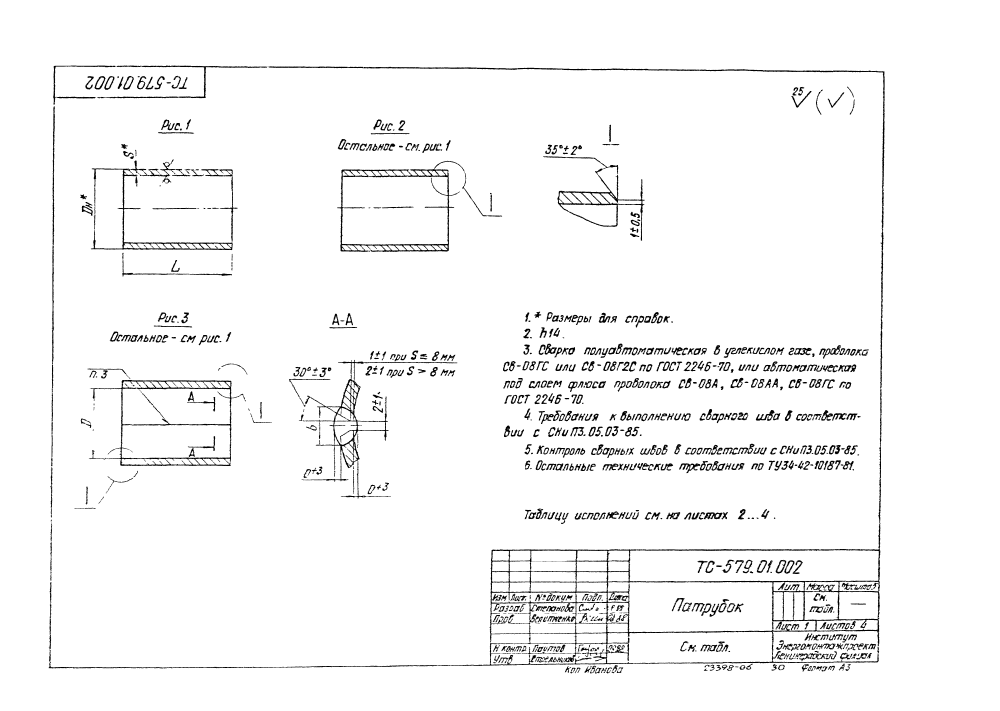 ТС-579.01.002
25
Рис. 1
S*
Dн*
L
Рис. 2
Остальное - см. рис. 1
I
I
35°±2°
1±0.5
Рис. 3
Остальное - см рис. 1
п. 3
А
А
D
I
I
А-А
1±1 при S ≤ 8 мм
2±1 при S > 8 мм
30°±3°
2±1
b
0+3
0+3
1. * Размеры для справок.
2. h14.
3. Сварка полуавтоматическая в углекислом газе, проволока
СВ-08ГС или СВ-08Г2С по ГОСТ 2246-70, или автоматическая
под слоем флюса проволока СВ-08А, СВ-08АА, СВ-08ГС по
ГОСТ 2246-70.
4. Требования к выполнению сварного шва в соответст-
вии с СНиП3.05.03-85.
5. Контроль сварных швов в соответствии с СНиП3.05.03-85.
6. Остальные технические требования по ТУ34-42-10187-81.
Таблицу исполнений см. на листах 2...4.
ТС-579.01.002
Изм Лист. № докум Подп. Дата
Разраб Степанова
Пров
Н контр. Паутов
Утв
Патрубок
См. табл.
Лит. Масса Масштаб
См. табл. —
Лист 1 Листов 4
Институт
Энергомонтажпроект
Ленинградский филиал
Коп Иванова
С3398-06 30 Формат А3